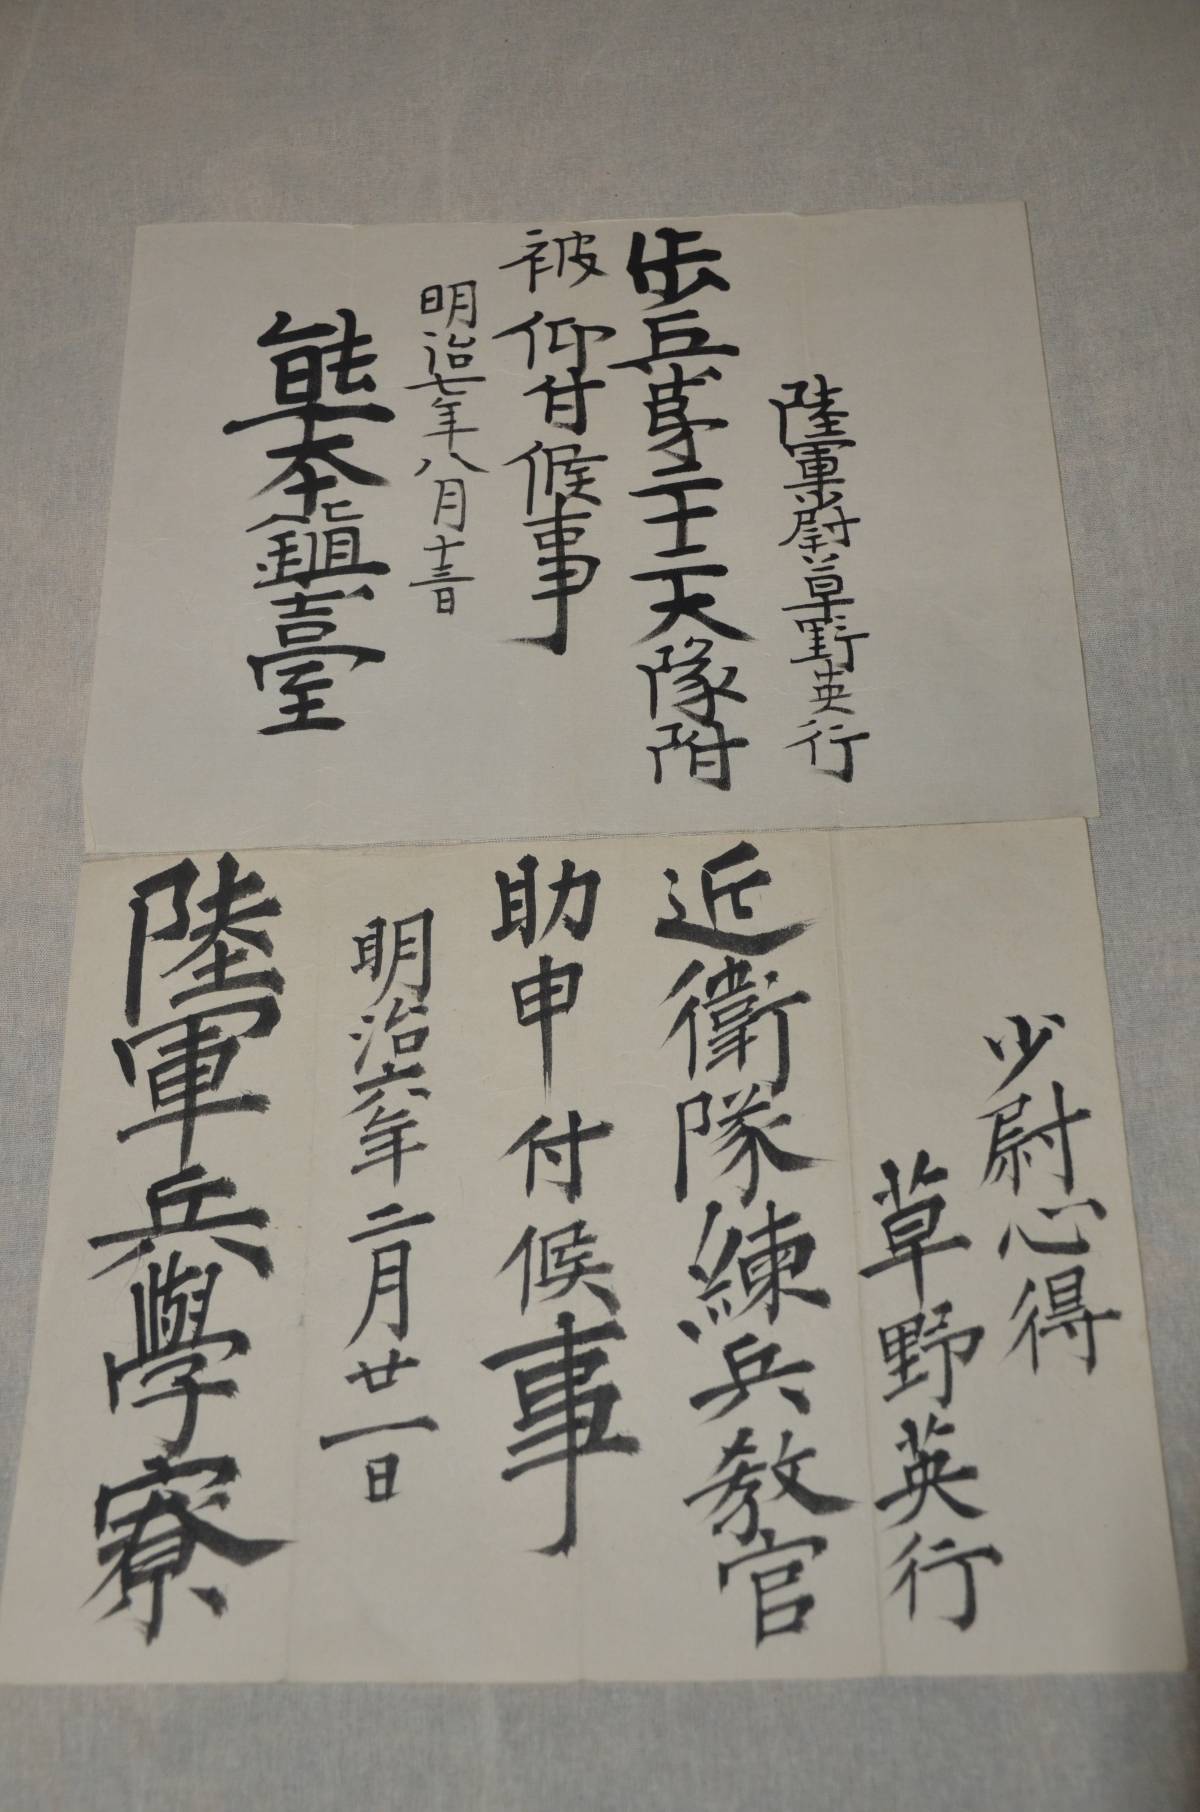 陸軍少尉草野英行
歩兵第二十二大隊附
被仰付候事
明治七年八月十三日
熊本鎮臺
少尉心得
草野英行
近衛隊練兵教官
助申付候事
明治六年二月廿一日
陸軍兵學寮